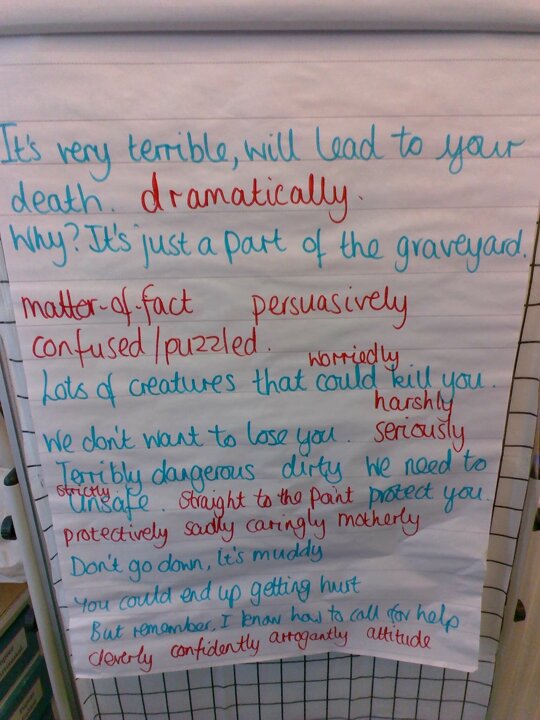 It's very terrible, will lead to your
death. dramatically.
Why? It's just a part of the graveyard.
matter-of-fact persuasively
confused/puzzled.
worriedly
Lots of creatures that could kill you.
harshly
We don't want to lose you. seriously
Terribly dangerous dirty we need to
strictly
Unsafe. Straight to the point protect you.
protectively sadly caringly motherly
Don't go down, it's muddy
You could end up getting hurt
But remember, I know how to call for help
cleverly confidently arrogantly attitude